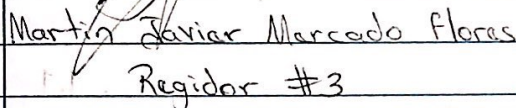 Martin Javier Mercado Flores
Regidor #3